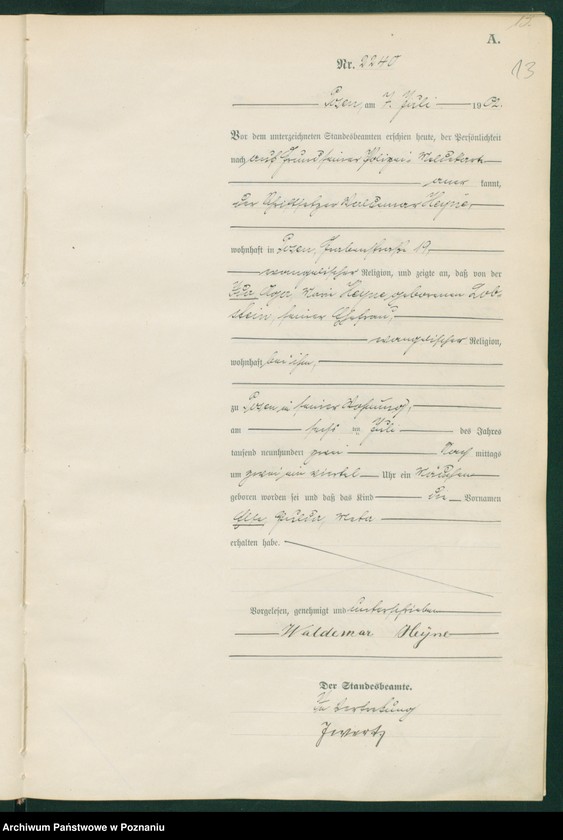 A.
13
Nr. 2240
Posen, am 7. Juli 1902.
Vor dem unterzeichneten Standesbeamten erschien heute, der Persönlichkeit
nach auf Grund seiner Polizei-Meldekarte
aner kannt,
der Schriftsetzer Waldemar Heyne,
wohnhaft in Posen, Grabenstraße 19,
evangelischer Religion, und zeigte an, daß von der
Heyne, geborenen Lob-
stein, seiner Ehefrau,
evangelischer Religion,
wohnhaft bei ihm,
zu Posen in seiner Wohnung,
am sechs ten Juli des Jahres
tausend neunhundert zwei Nach mittags
um zwei ein viertel Uhr ein Mädchen
geboren worden sei und daß das Kind die Vornamen
Meta
erhalten habe.
Vorgelesen, genehmigt und unterschrieben
Waldemar Heyne
Der Standesbeamte.
In Vertretung
Archiwum Państwowe w Poznaniu